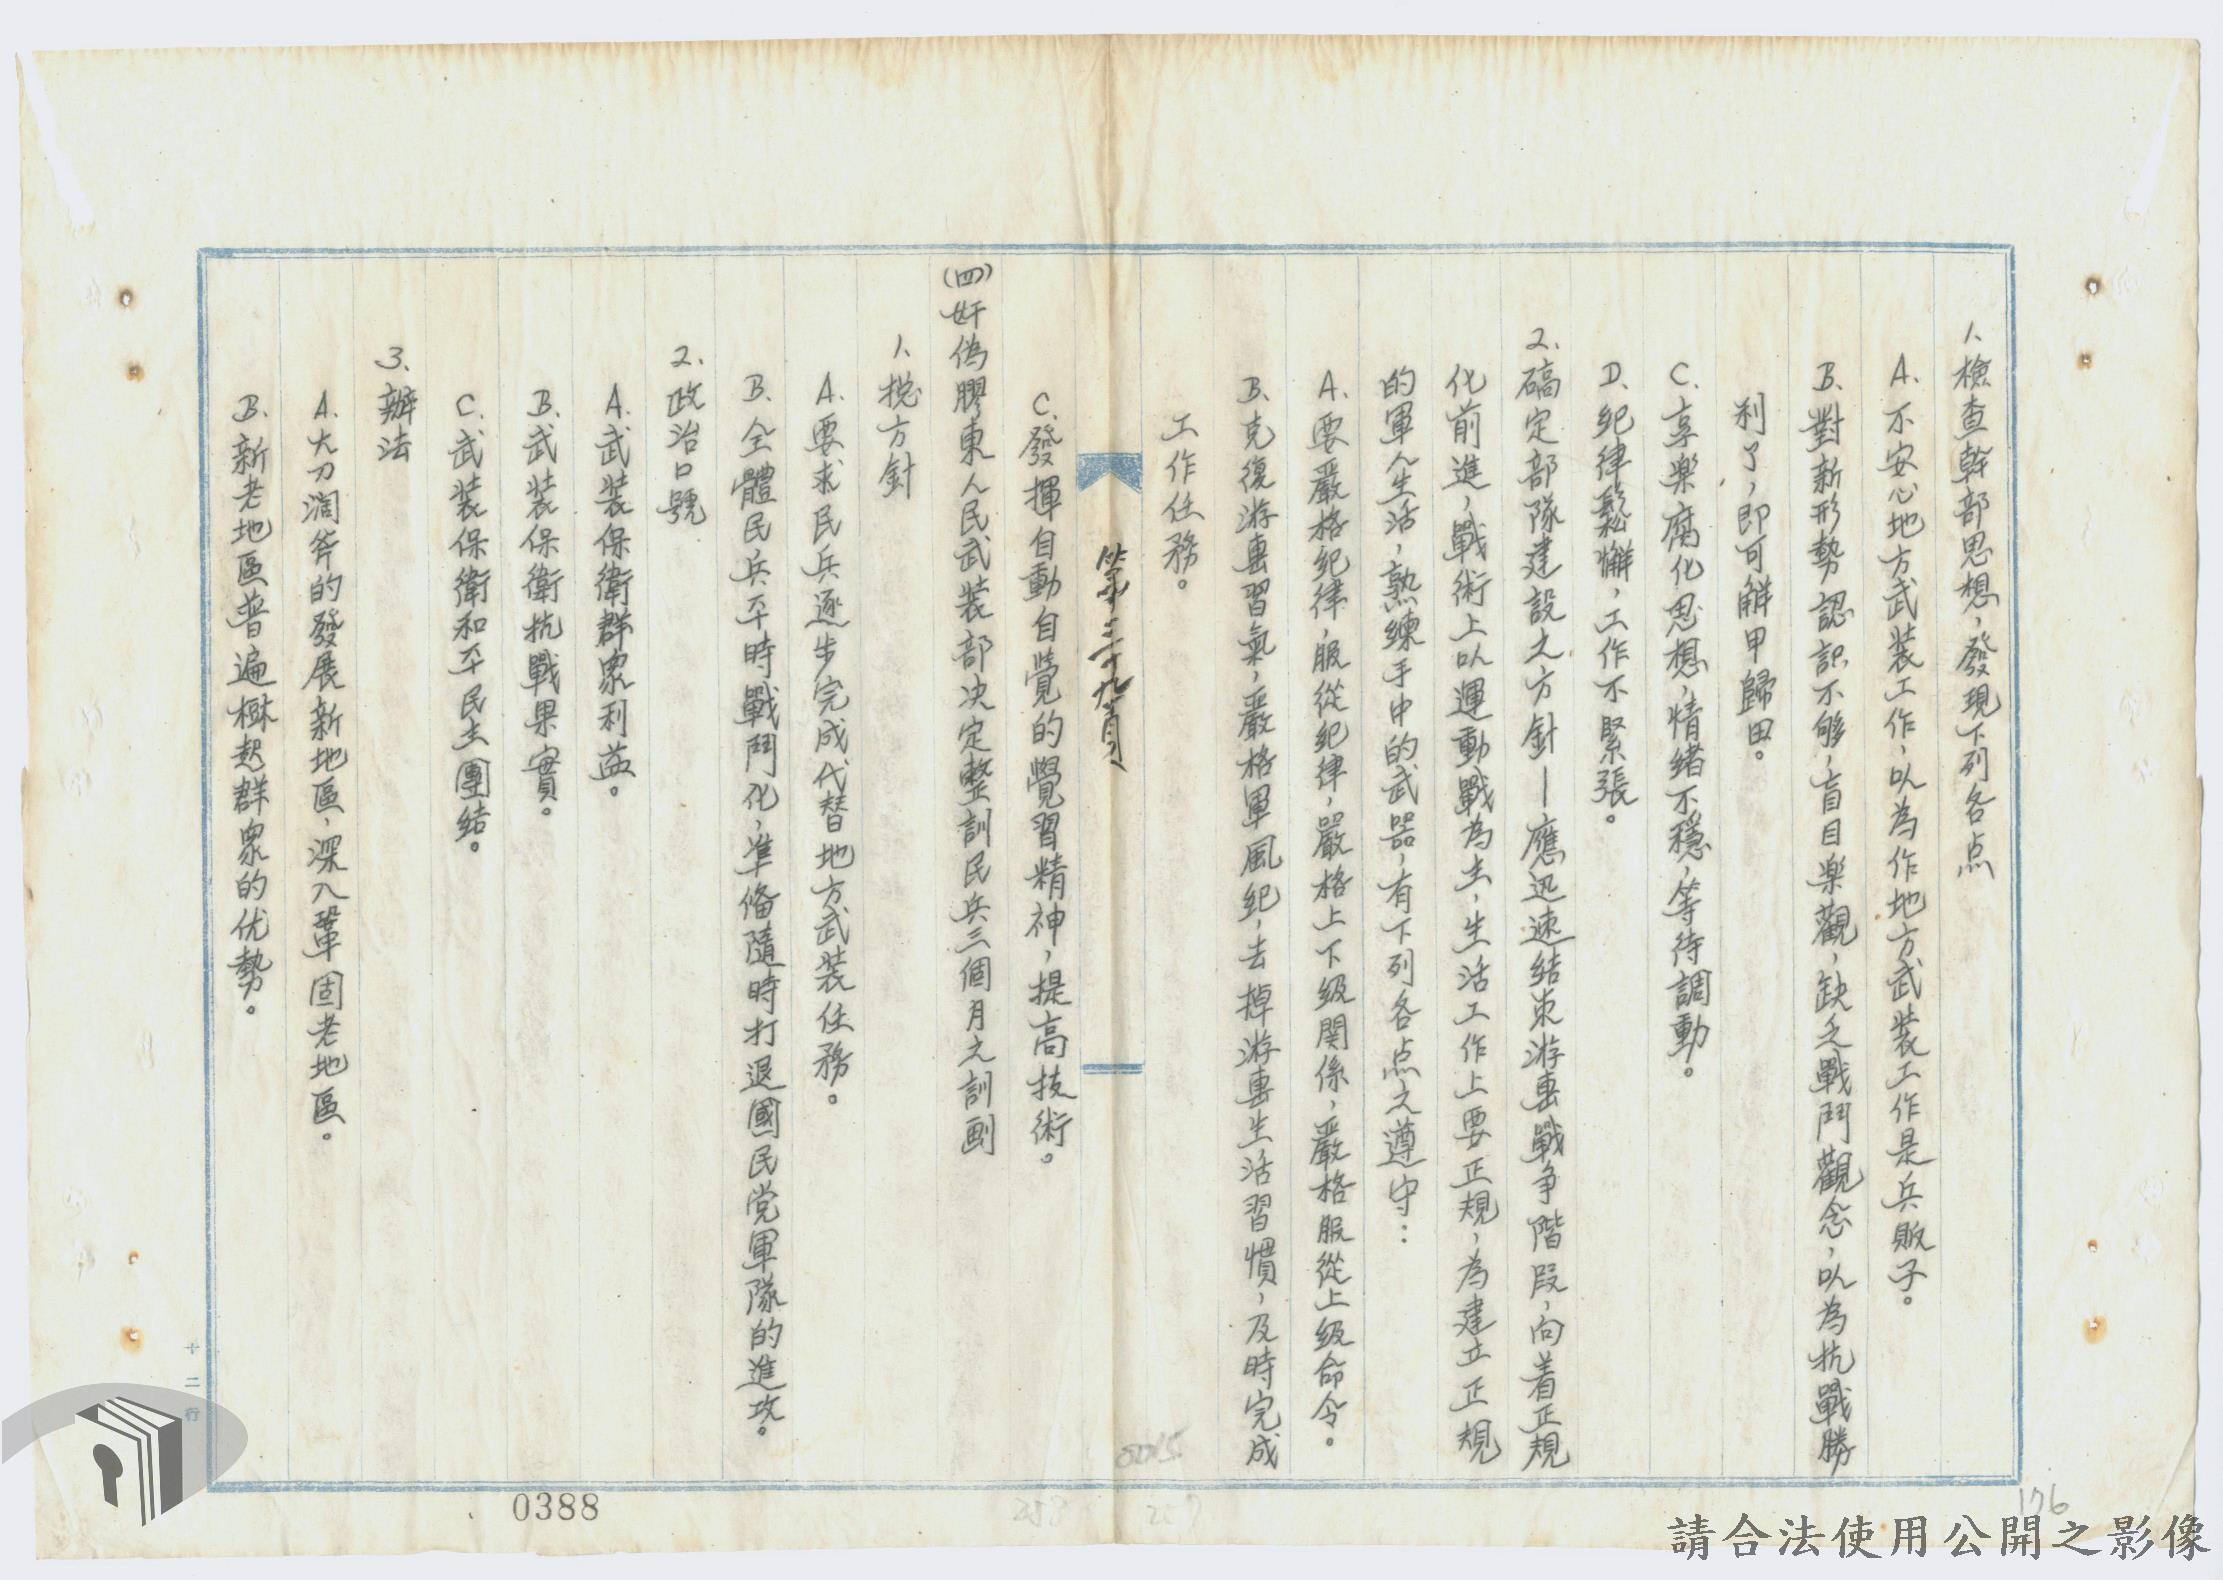 1、檢查幹部思想，發現下列各点
A、不安心地方武装工作，以為作地方武装工作是兵販子。
B、對新形勢認識不够，盲目楽觀，缺乏戰鬥觀念，以為抗戰勝
利了，即可解甲歸田。
C、享楽腐化思想，情緒不穩，等待調動。
D、紀律鬆懈，工作不緊張。
2、碻定部隊建設之方針—應迅速結束游击戰争階段，向着正規
化前進，戰術上以運動戰為主，生活工作上要正規，為建立正規
的軍人生活，熟練手中的武器，有下列各点之遵守：
A、要嚴格紀律，服從紀律，嚴格上下级関係，嚴格服從上级命令。
B、克復游击習氣，嚴格軍風紀，去掉游击生活習慣，及時完成
工作任務。
第三十九頁
C、發揮自動自覺的學習精神，提高技術。
(四)奸偽膠東人民武装部决定整訓民兵三個月之訓劃
1、捴方針
A、要求民兵逐步完成代替地方武装任務。
B、全體民兵平時戰鬥化，準俻隨時打退國民党軍隊的進攻。
2、政治口號
A、武装保衛群衆利益。
B、武装保衛抗戰果實。
C、武装保衛和平民主團結。
3、辦法
A、大刀濶斧的發展新地區，深入鞏固老地區。
B、新老地區普遍樹起群衆的优勢。
十二行
0388
176
請合法使用公開之影像